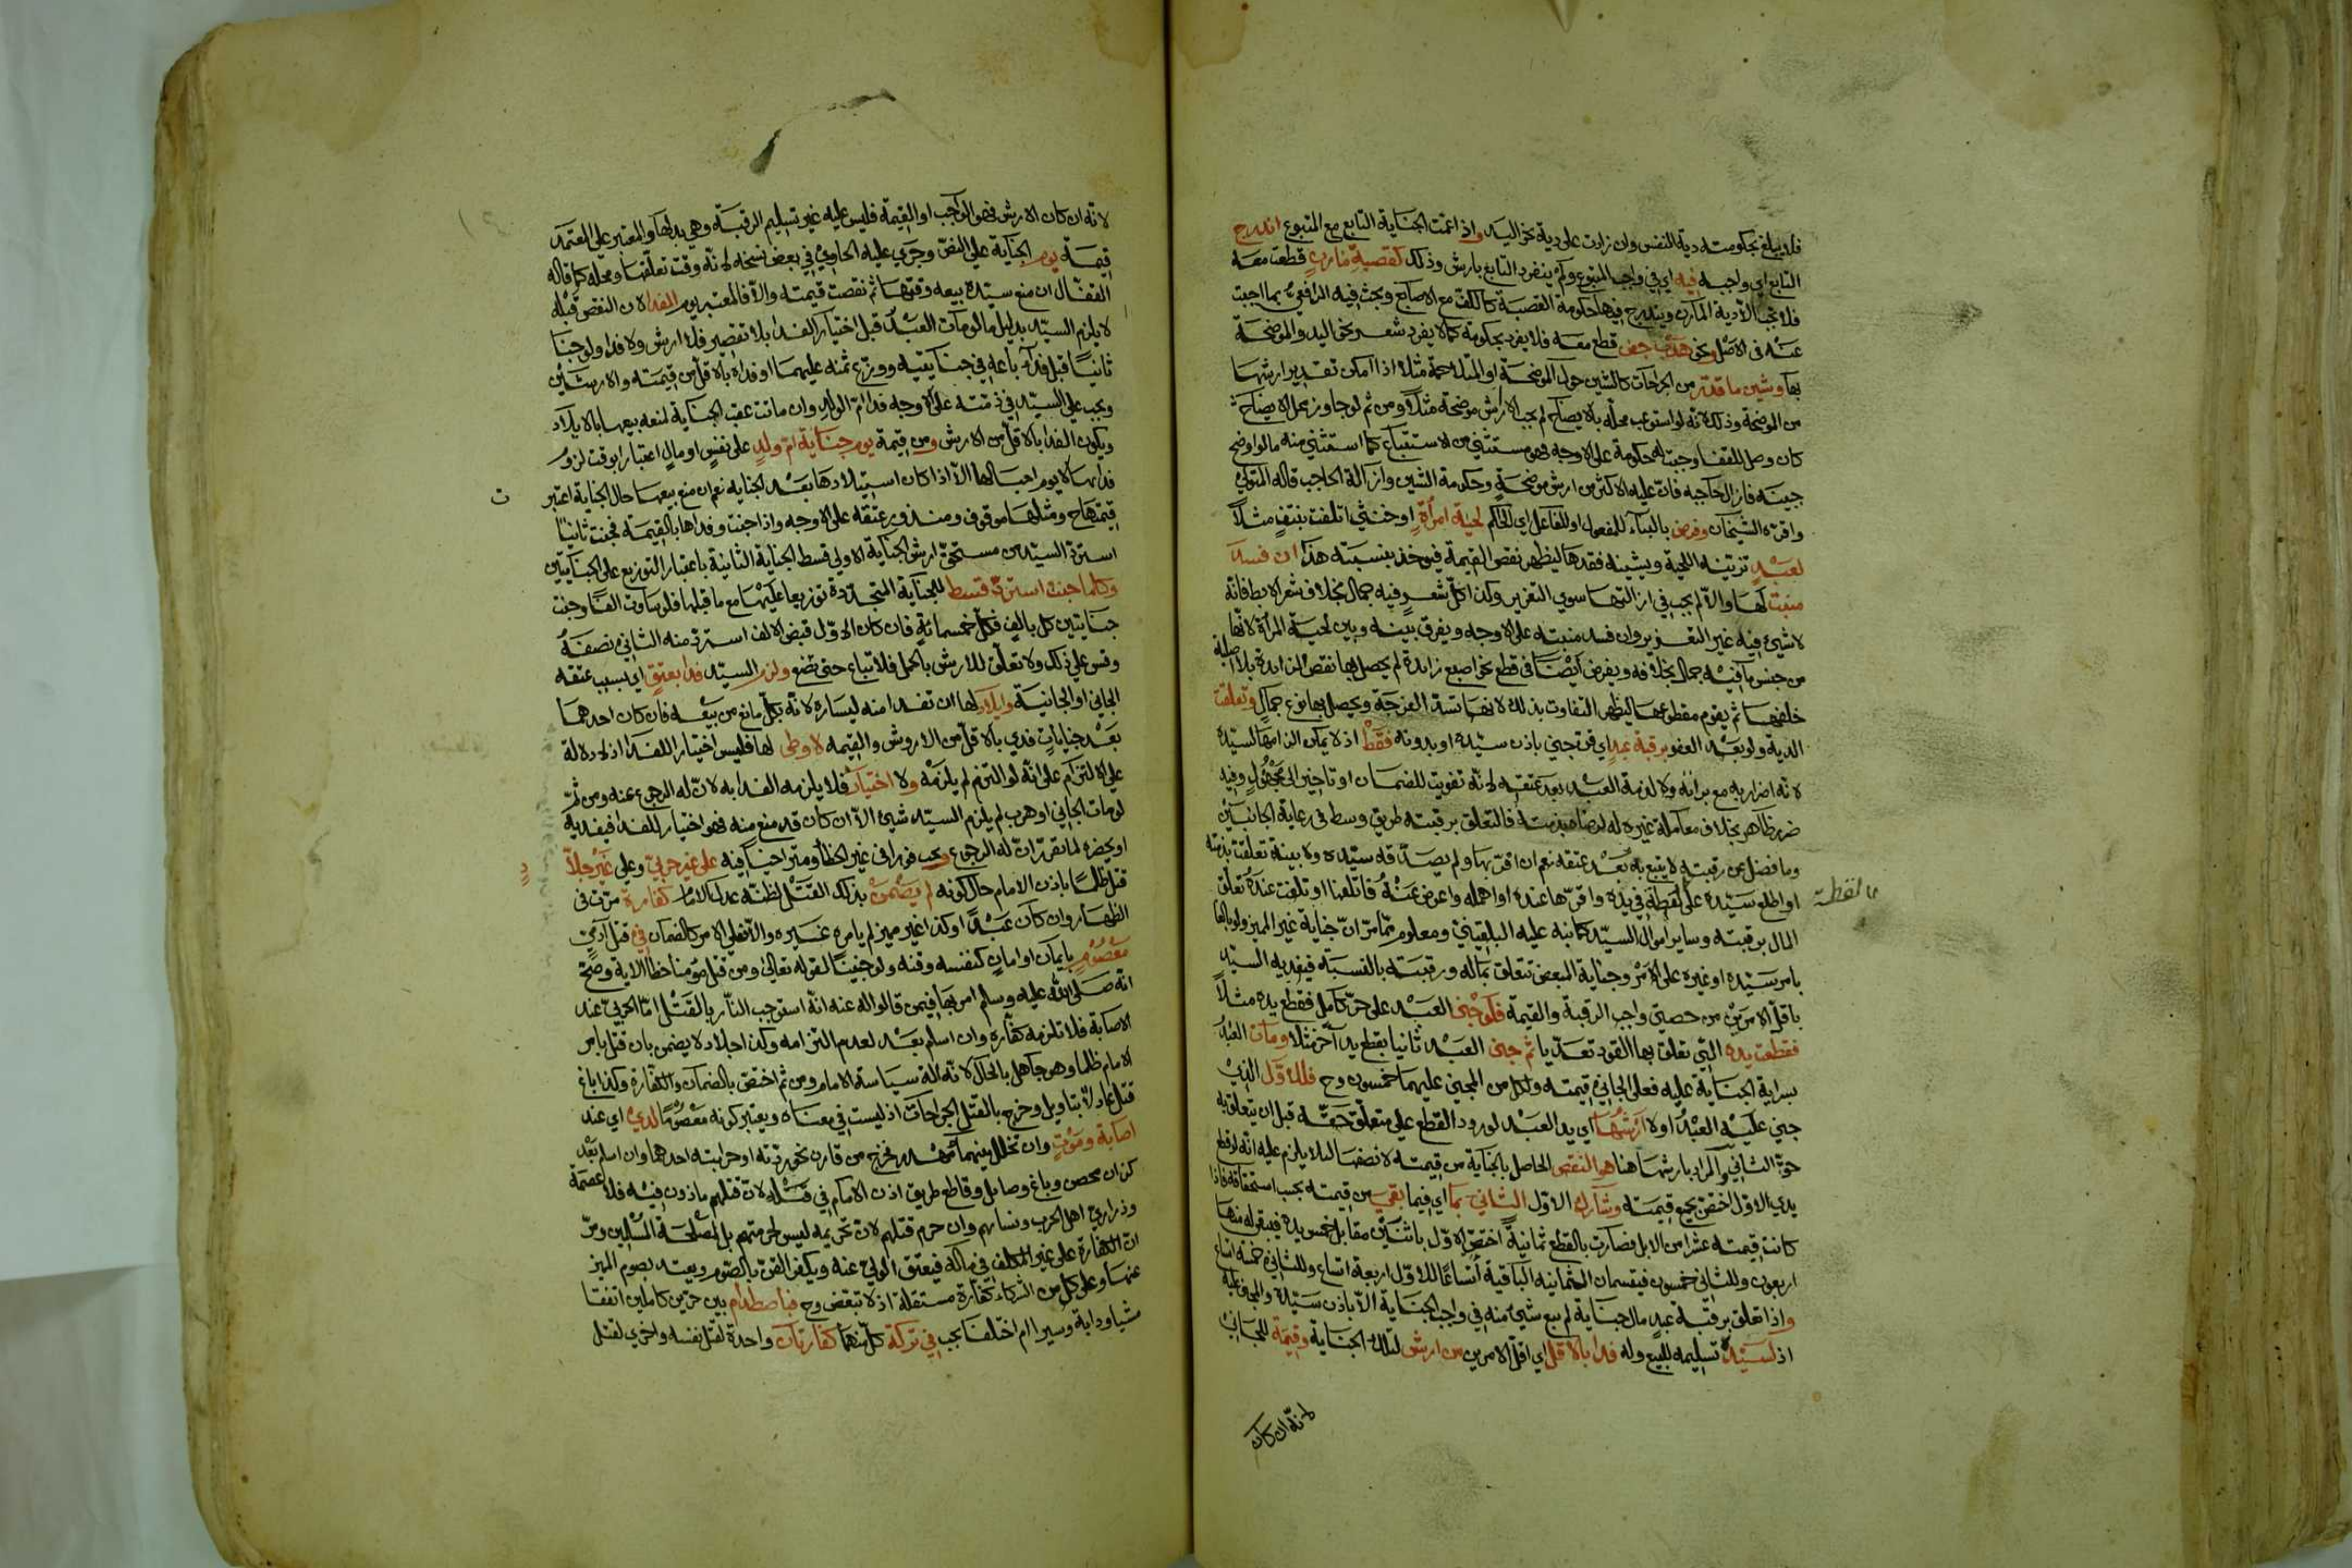 فلا يبلغ بحكومته دية النفس وان زادت على دية نحو اليد واذا عمت الجناية التابع مع المتبوع اندرج
التابع اي واجبه فيه اي في واجب المتبوع ولم ينفرد التابع بارش وذلك كقصبة مارن قطعت معه
فلا تجب الا دية المارن ويندرج فيها حكومة القصبة كالكف مع الاصابع وبحث فيه الرافعي بما اجبت
عنه في الاصل ونحو هدب جفن قطع معه فلا يفرد بحكومة كما لا يفرد شعر نحو اليد والموضحة
بها وشين ما قدر من الجراحات كالشين حول الموضحة او المتلاحمة مثلا اذا امكن تقدير ارشها
من الموضحة وذلك لانه لو استوعب محله بالايضاح لم يجب الا ارش موضحة مثلا ومن ثم لو جاوز محل الايضاح
كان وصل للقفا وجبت له حكومة على الاوجه فهو مستثنى من الاستتباع كما استثنى منه ما لو اوضح
جبينه فازال حاجبه فان عليه الاكثر من ارش موضحة وحكومة الشين وازالة الحاجب قاله المتولي
واقره الشيخان وفرض بالبناء للمفعول او للفاعل اي الحاكم لحية امرأة او خنثى اتلفت بنتف مثلا
لعبد تزينه اللحية ويشينه فقدها ليظهر نقص القيمة فيوخذ بنسبته هذا ان فسد
منبت لها والا لم يجب في ازالتها سوى التعزير وكذا كل شعر فيه جمال بخلاف شعر الابط فانه
لا شيء فيه غير التعزير وان فسد منبته على الاوجه ويفرق بينه وبين لحية المرأة لانها
من جنس ما فيه جمال بخلافه ويفرض ايضا في قطع نحو اصبع زايدة لم يحصل بها نقص الزايدة بلا اصلية
خلفها ثم يقوم مقطوعها ليظهر التفاوت بذلك لانها تسد الفرجة ويحصل بها نوع جمال وتعلقت
الدية ولو بعد العفو برقبة عبد اي قن جنى باذن سيده او بدونه فقط اذ لا يمكن الزامها لسيده
لانه اضرار به مع برائته ولا لذمة العبد بعد عتقه لانه تفويت للضمان او تاخير الى مجهول وفيه
ضرر ظاهر بخلاف معاملة غيره له لرضاه بذمته فالتعلق برقبته طريق وسط في رعاية الجانبين
وما فضل عن رقبته لا يتبع به بعد عتقه نعم ان اقر بها ولم يصدقه سيده ولا بينة تعلقت بذمته
او اطلع سيده على لقطة في يده واقرها عنده او اهمله واعرض عنه فاتلفها او تلفت عنده تعلق
المال برقبته وساير اموال السيد كما نبه عليه البلقيني ومعلوم مما مر ان جناية غير المميز ولو بالغا
بامر سيده او غيره على الامر وجناية المبعض تتعلق بماله ورقبته بالنسبة فيفديه السيد
باقل الامرين من حصتي واجب الرقبة والقيمة فلو جنى العبد على حر كامل فقطع يده مثلا
فقطعت يده التي تعلق بها القود تعديا ثم جنى العبد ثانيا بقطع يد آخر مثلا ومات العبد
بسراية الجناية عليه فعلى الجاني قيمته ولكل من المجني عليهما خمسون وح فللاول الذي
جنى عليه العبد اولا ارشها اي يد العبد لورود القطع على متعلق حقه قبل ان يتعلق به
حق الثاني والمراد بارشها هنا هو النقص الحاصل بالجناية من قيمته لا نصفها لئلا يلزم عليه انه لو قطع
يدي الاول اختص بجميع قيمته وشارك الاول الثاني بما اي فيما بقي من قيمته بحسب استحقاقه فاذا
كانت قيمته عشرا من الابل فصارت بالقطع ثمانية اختص الاول باثنين مقابل خمس يده فيبقى له منها
اربعون وللثاني خمسون فيقسمان الثمانية الباقية اتساعا للاول اربعة اتساع وللثاني خمسة اتساع
واذا تعلق برقبة عبد مال جناية لم يبع شيء منه في واجب الجناية الا باذن سيده والمجني عليه
اذ لسيده تسليمه للبيع وله فدا بالاقل اي اقل الامرين من ارش لتلك الجناية وقيمة للجاني
لانه ان كان
لقطة
لانه ان كان الارش فهو الواجب او القيمة فليس عليه غير تسليم الرقبة وهي بدلها والمعتبر على المعتمد
قيمة يوم الجناية على النص وجرى عليه الحاوي في بعض نسخه لانه وقت تعلقها ومحله كما قاله
القفال ان منع سيده بيعه وقتها ثم نقصت قيمته والا فالمعتبر يوم الفدا لان النقص قبله
لا يلزم السيد بدليل ما لو مات العبد قبل اختيار الفدا بلا تقصير فلا ارش ولا فدا ولو جنا
ثانيا قبل فدآء باعه في جنايتيه ووزع ثمنه عليهما او فداه بالاقل من قيمته والارشين
ويجب على السيد في ذمته على الاوجه فدا ام الولد وان ماتت عقب الجناية لمنعه بيعها بالايلاد
ويكون الفدا بالاقل من الارش ومن قيمة يوم جناية ام ولد على نفس او مال اعتبارا بوقت لزوم
فدائها لا يوم احبالها الا اذا كان استيلادها بعد الجناية نعم ان منع بيعها حال الجناية اعتبر
قيمتها ح ومثلها موقوف ومنذور عتقه على الاوجه واذا جنت وفداها بالقيمة فجنت ثانيا
استرد السيد من مستحق ارش الجناية الاولى قسط الجناية الثانية باعتبار التوزيع على الجنايتين
وكلما جنت استرد قسط للجناية المتجددة توزيعا عليها مع ما قبلها فلو ساوت الفا وجنت
جنايتين كل بالف فكل خمسمائة فان كان الاول قبض الالف استرد منه الثاني نصفه
وقس على ذلك ولا تعلق للارش بالحمل فلا تباع حتى تضع ولزم السيد فدا بعتق اي بسبب عتقه
الجاني او الجانية وايلاد لها ان تفدا منه ليساره لانه بكل مانع من بيعه فان كان احدهما
بعد جنايات فدي بالاقل من الاروش والقيمة لا وطى لها فليس اختيار للفدا اذ لا دلالة
على الالتزام على انه لو التزم لم يلزمه ولا اختيار فلا يلزمه الفدا به لان له الرجوع عنه ومن ثم
لو مات الجاني او هرب لم يلزم السيد شيء الا ان كان قد منع منه فهو اختيار للفدا فيفديه
او يحضره لما تقرر ان له الرجوع ويجب فورا في غير الخطأ ومتراخيا فيه على غير حربي وعلى غير جلاد
قتل ظلما باذن الامام حال كونه لم يضمن بذلك القتل لظنه عدل الامام كفارة مرت في
الظهار وان كان عبدا او كذا غير مميز لم يامره غيره والا فعلى الامر كالضمان في قتل آدمي
معصوم بايمان او امان كنفسه وقنه ولو جنينا لقوله تعالى ومن قتل مؤمنا خطا الاية وصح
انه صلى الله عليه وسلم امر بها فيمن قالوا له عنه انه استوجب النار بالقتل اما الحربي عند
الاصابة فلا تلزمه كفارة وان اسلم بعد لعدم التزامه وكذا جلاد لا يضمن بان قتل بامر
الامام ظلما وهو جاهل بالحال لانه الة سياسة الامام ومن ثم اختص بالضمان والكفارة وكذا باغ
قتل عادلا بتاويل وخرج بالقتل الجراحات اذ ليست في معناه ويعتبر كونه معصوما لدي اي عند
اصابة وموت وان تخلل بينهما مهدر فخرج من قارن نحو ردته او حرابته احدهما وان اسلم بعد
كزان محصن وباغ وصايل وقاطع طريق اذن الامام في قتله لان قتلهم ماذون فيه فلا عصمة
وذراري اهل الحرب ونسائهم وان حرم قتلهم لان تحريمه ليس لحرمتهم بل لمصلحة المسلمين ومر
ان الكفارة على غير المكلف في ماله فيعتق الولي عنه ويكفر القن بالصوم ويعتد بصوم المميز
عنها وعلى كل من الشركاء كفارة مستقلة اذ لا تبعض وح فباصطدام بين حرين كاملين اتفقا
مشيا ودابة وسيرا ام اختلفا يجب في تركة كل منهما كفارتان واحدة لقتل نفسه واخرى لقتل